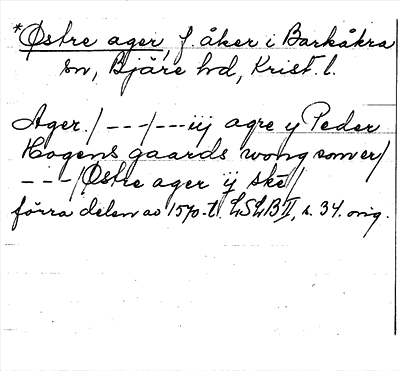 *Østre ager, f. åker i Barkåkra
sn, Bjäre hd, Krist. l.
Ager./ ---/---iij agre y Peder
Hogens gaards wong som er/
---/Østre ager ÿ ske/
förra delen av 1570-t. LSLB II, s. 34. orig.